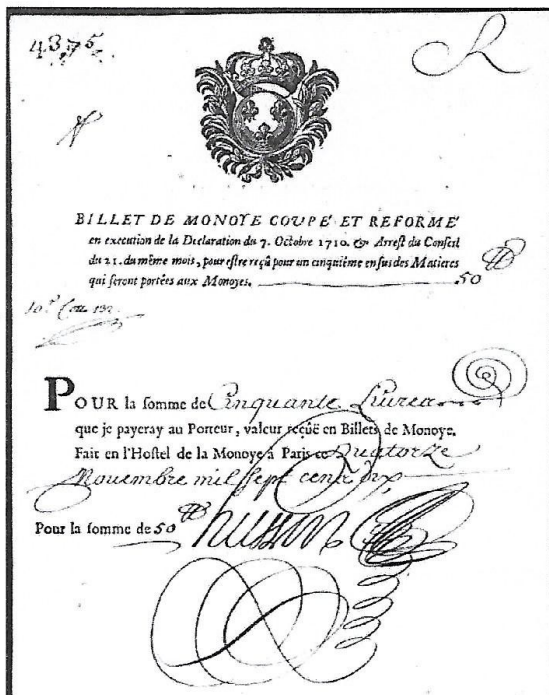 4375
R
BILLET DE MONOYE COUPE' ET REFORME'
en execution de la Declaration du 7. Octobre 1710. & Arrest du Conseil
du 21. du même mois, pour estre reçû pour un cinquiéme en sus des Matieres
qui seront portées aux Monoyes. 50
POUR la somme de Cinquante Livres
que je payeray au Porteur, valeur reçûë en Billets de Monoye.
Fait en l'Hostel de la Monoye à Paris ce Quatorze
Novembre mil sept cent dix
Pour la somme de 50